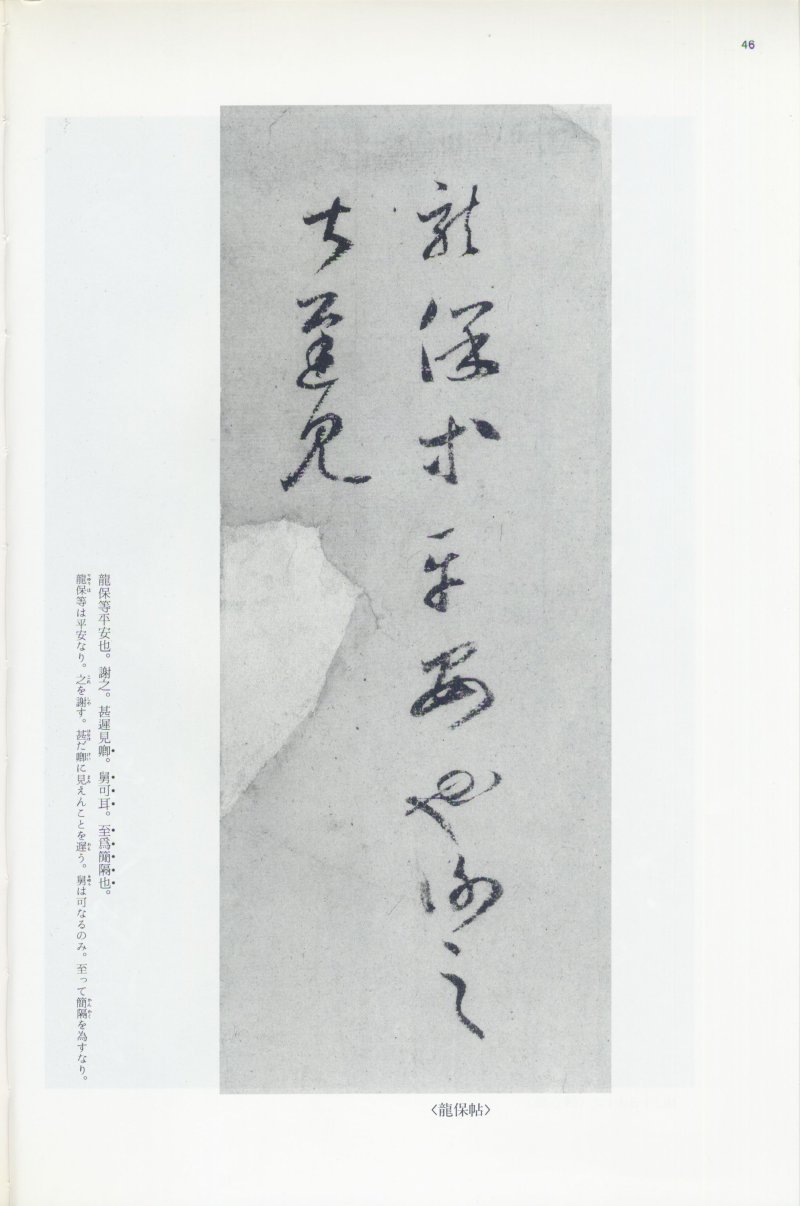 46
龍保等平安也謝之
甚遲見
〈龍保帖〉
龍保等平安也。謝之。甚遲見卿。舅可耳。至爲簡隔也。
龍保等は平安なり。之を謝す。甚だ卿に見えんことを遲う。舅は可なるのみ。至って簡隔を為すなり。